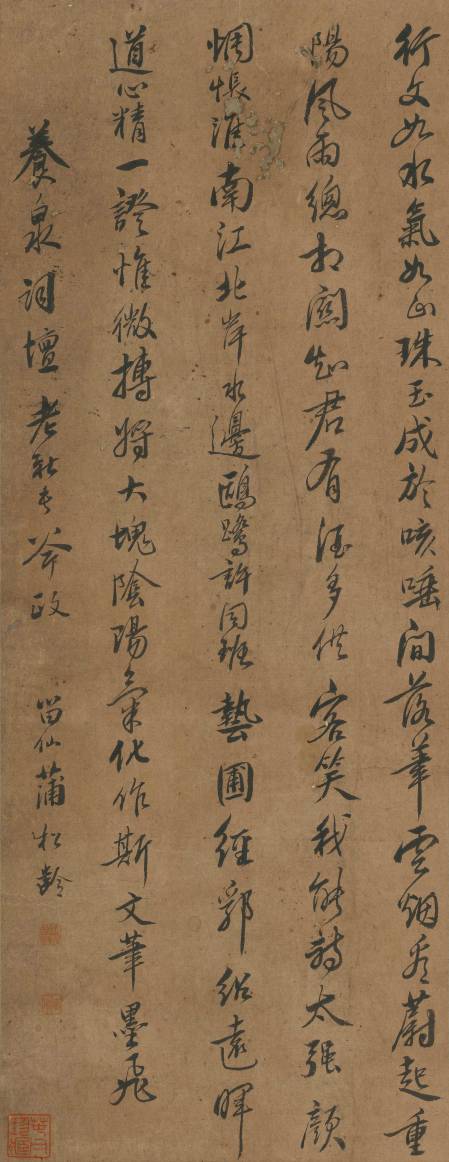 行文如水氣如山珠玉成於咳唾間落筆雲烟看蔚起重
陽風雨總相關知君有酒多供客笑我能詩太强顔
惆悵淮南江北岸水邊鷗鷺許同班藝圃經鄂紹遠暉
道心精一證惟微摶將大塊陰陽氣化作斯文筆墨飛
養泉詞壇老斧政
留仙蒲松齡